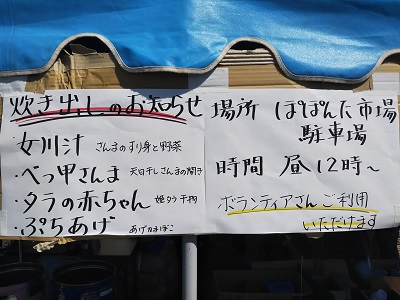 炊き出しのお知らせ
・女川汁 さんまのすり身と野菜
・べっ甲さんま 天日干しさんまの開き
・タラの赤ちゃん 姫タラ干物
・ぷちあげ あげかまぼこ
場所 ぽぽんた市場
駐車場
時間 昼12時〜
ボランティアさんご利用
いただけます